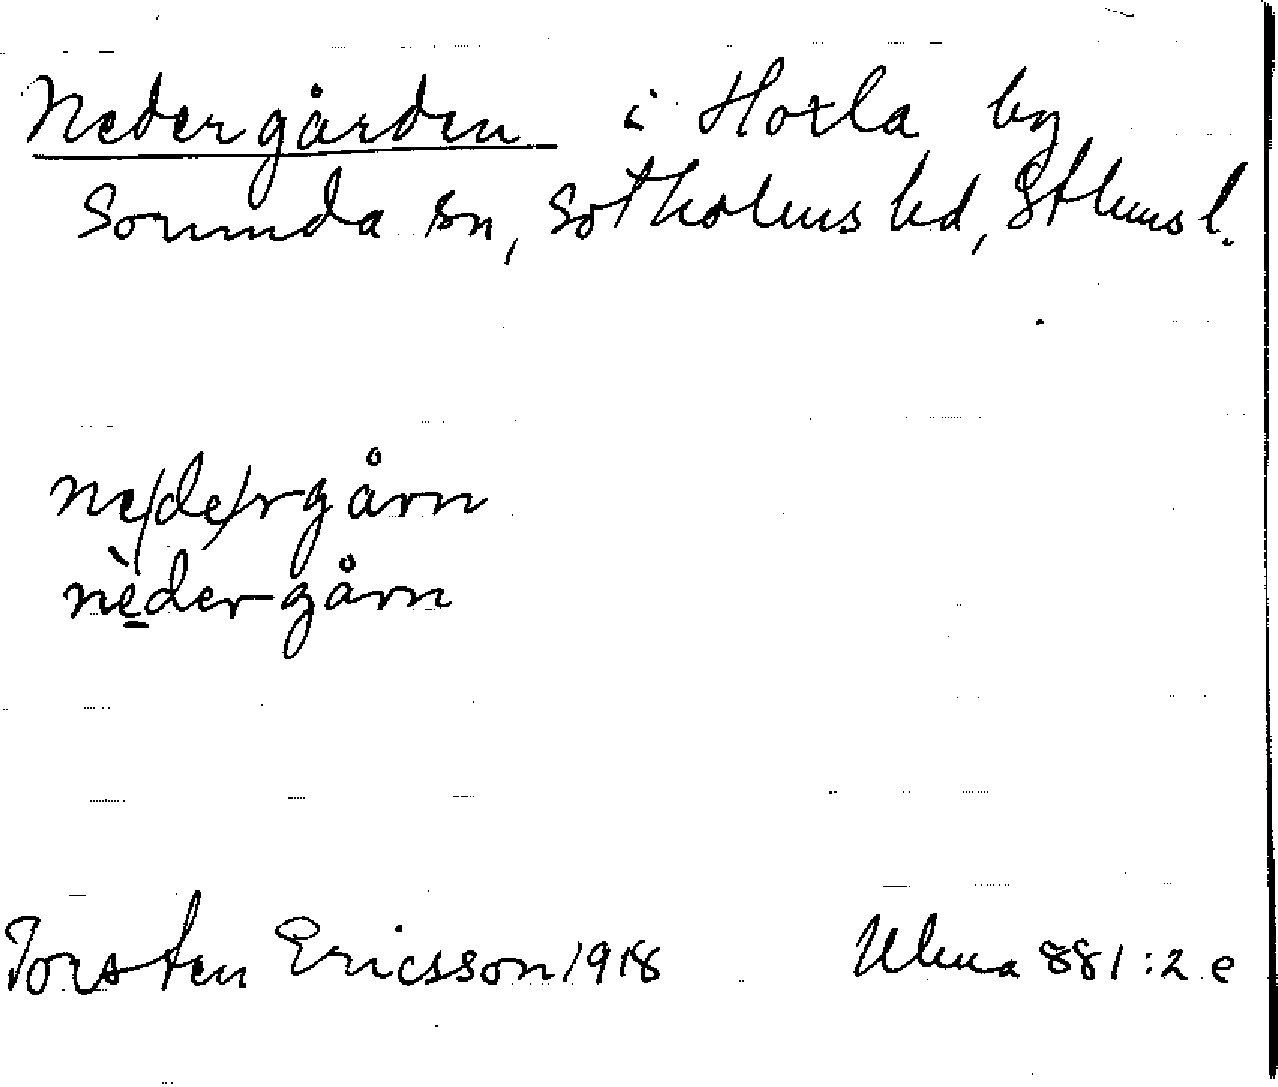 Nedergården i Hoxla by
Sorunda sn, Sotholms hd, Sthms l.
ne/de/rgårn
nèdergårn
Torsten Ericsson 1918 Ulma 881:2 e